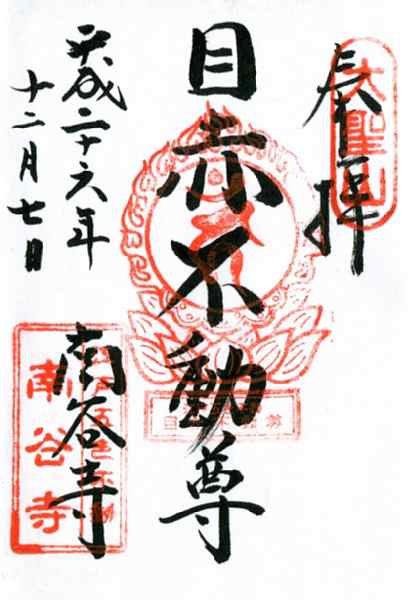 奉拝
大聖山
目赤不動尊
平成二十六年
十二月七日
南谷寺
南谷寺